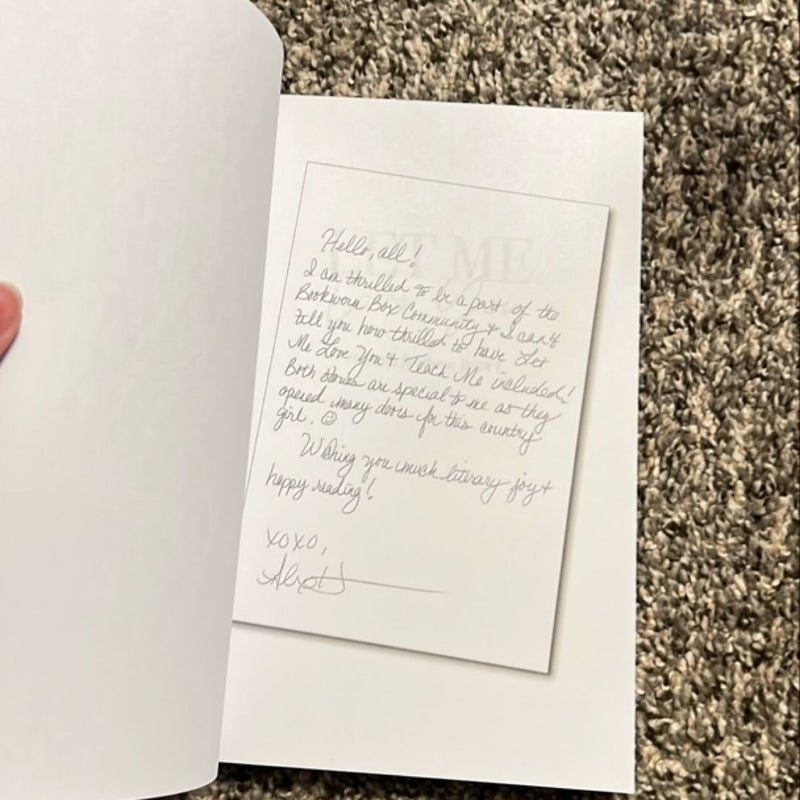 Hello, all!
I am thrilled to be a part of the
Bookworm Box Community & I can't
tell you how thrilled to have Let
Me Love You & Teach Me included!
Both stories are special to me as they
opened many doors for this country
girl. ☺
Wishing you much literary joy &
happy reading!
xoxo,
LET ME